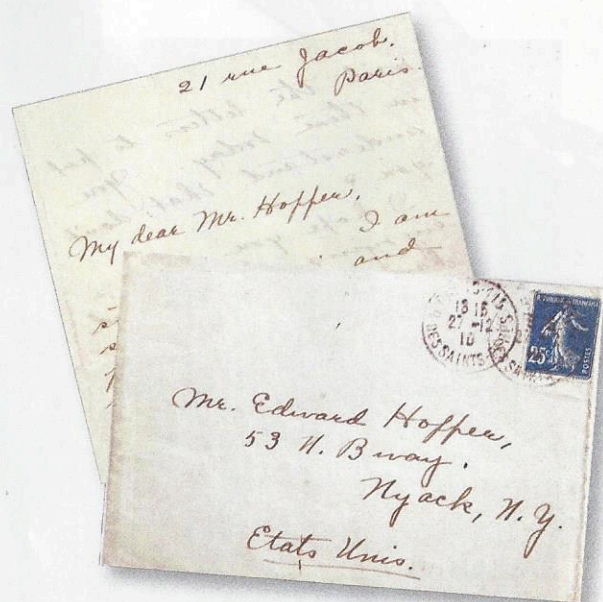 21 rue Jacob.
Paris
My dear Mr. Hopper,
I am
and
18 15
27 -12
10
DES SAINTS
25
POSTES
Mr. Edward Hopper,
53 N. Bway.
Nyack, N.Y.
Etats Unis.